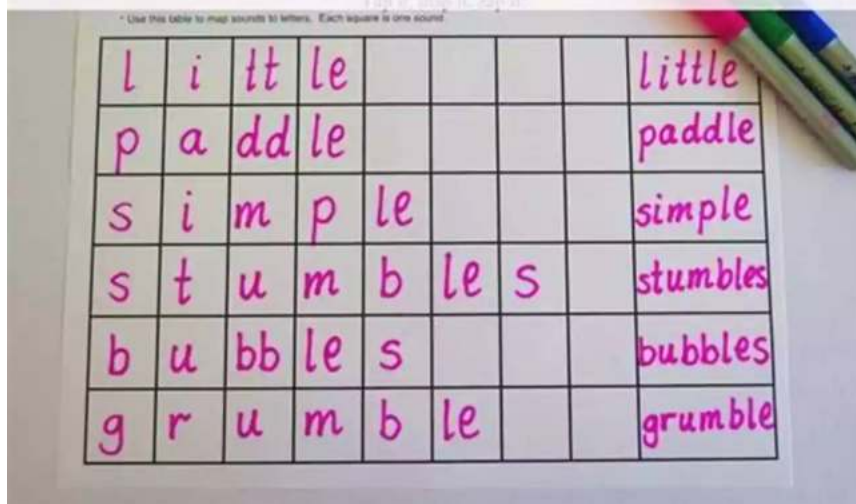 * Use this table to map sounds to letters. Each square is one sound
l i tt le little
p a dd le paddle
s i m p le simple
s t u m b le s stumbles
b u bb le s bubbles
g r u m b le grumble